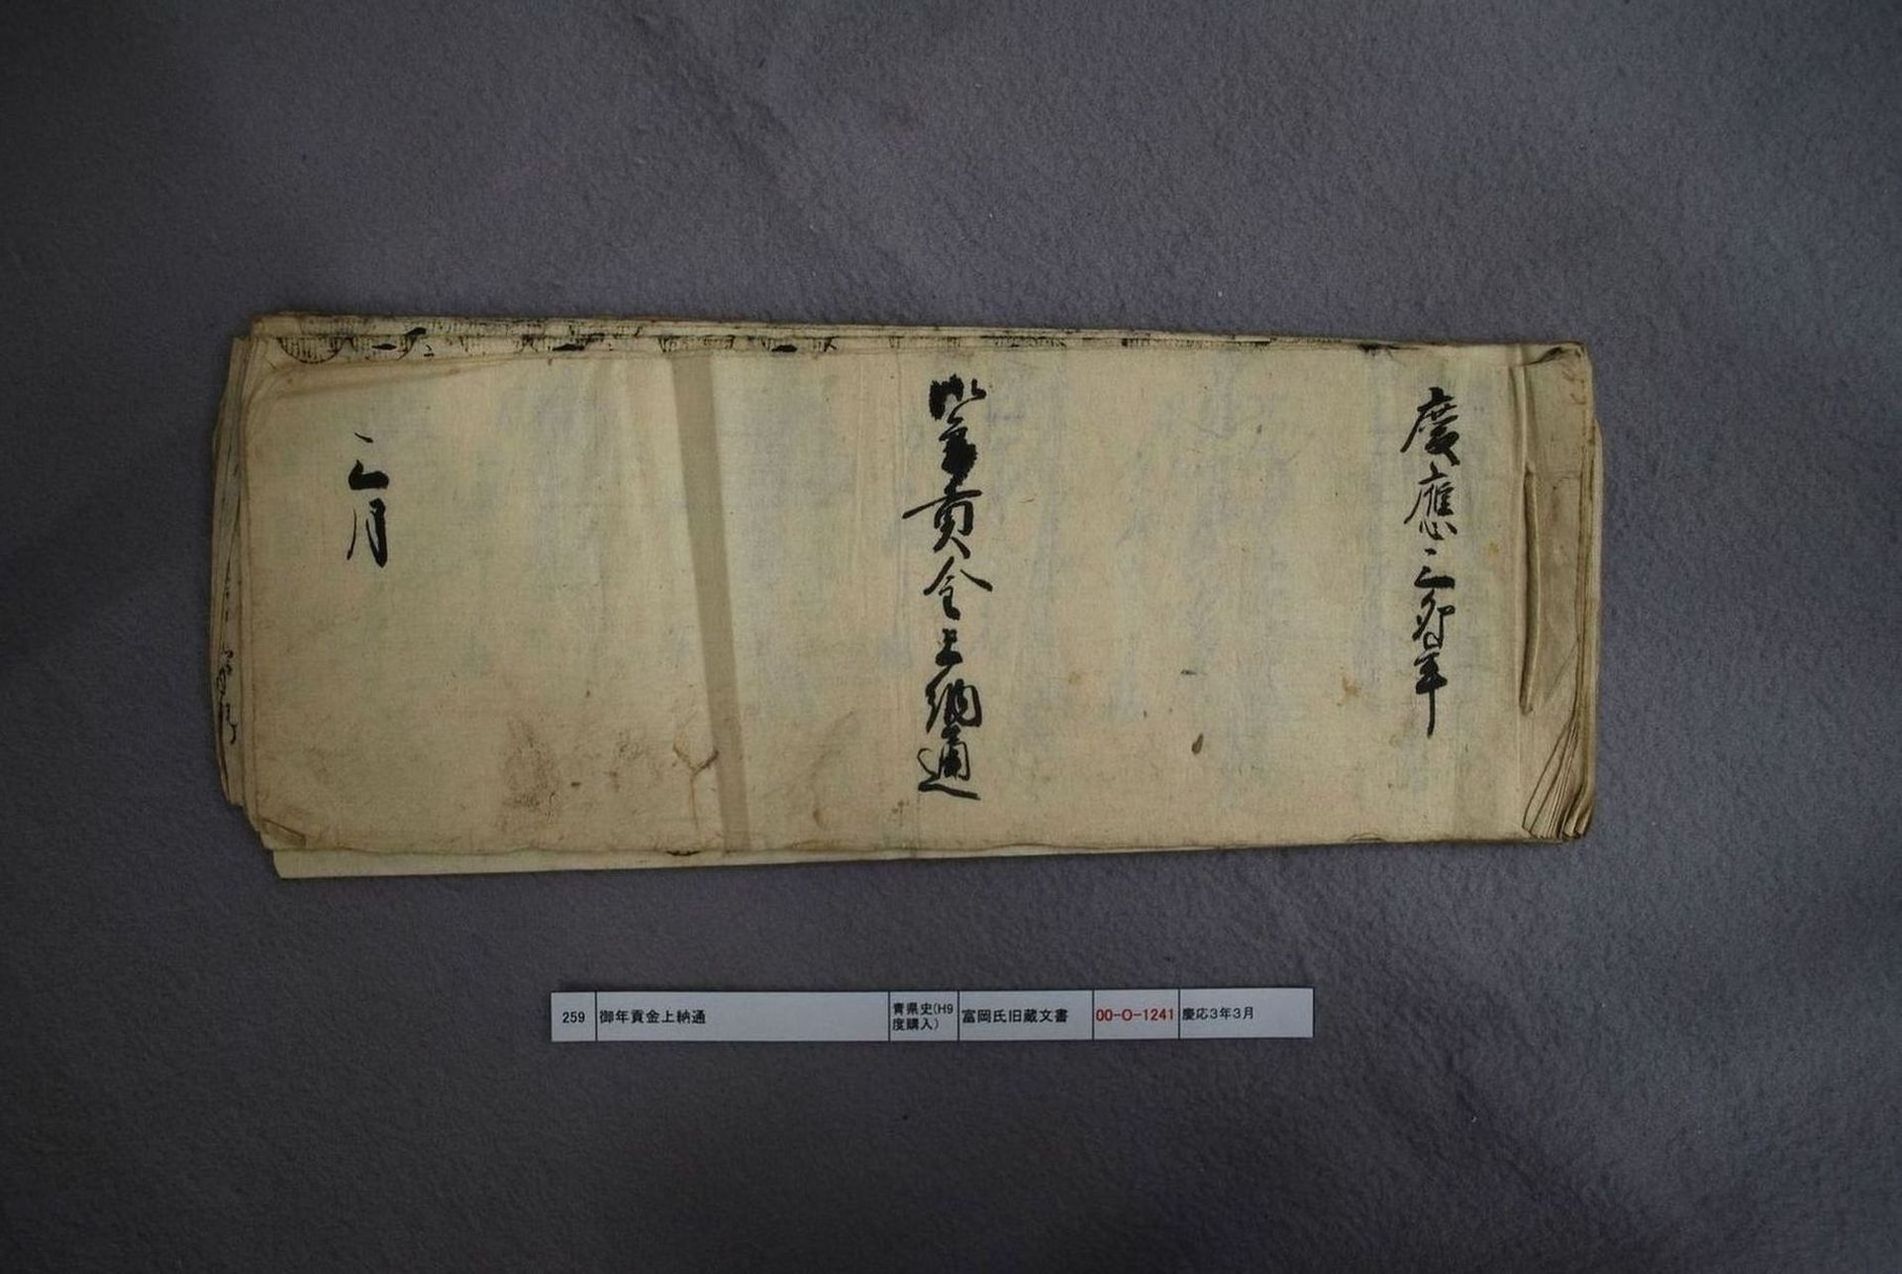 慶應三卯年
御年貢金上納通
三月
259 御年貢金上納通 青県史(H9度購入) 富岡氏旧蔵文書 00-O-1241 慶応3年3月